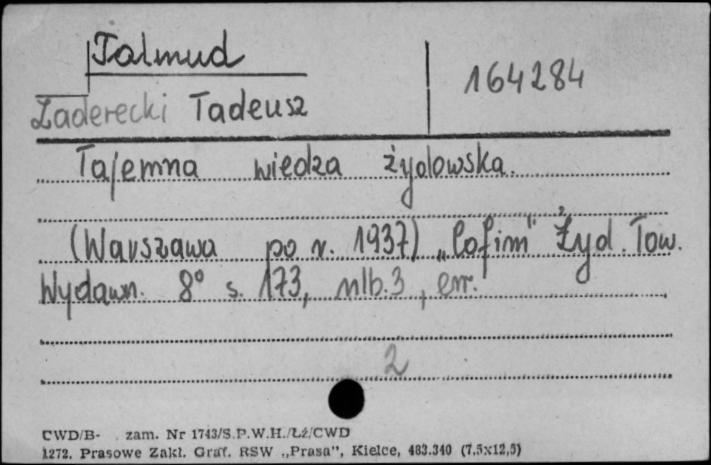 Talmud
164284
Zaderecki Tadeusz
Tajemna wiedza żydowska.
(Warszawa po r. 1937) „Cofim" Żyd. Tow.
Wydawn. 8° s. 173, nlb. 3, err.
2
CWD/B- zam. Nr 1743/S.P.W.H./Łź/CWD
1272. Prasowe Zakł. Graf. RSW „Prasa", Kielce, 483.340 (7,5x12,5)